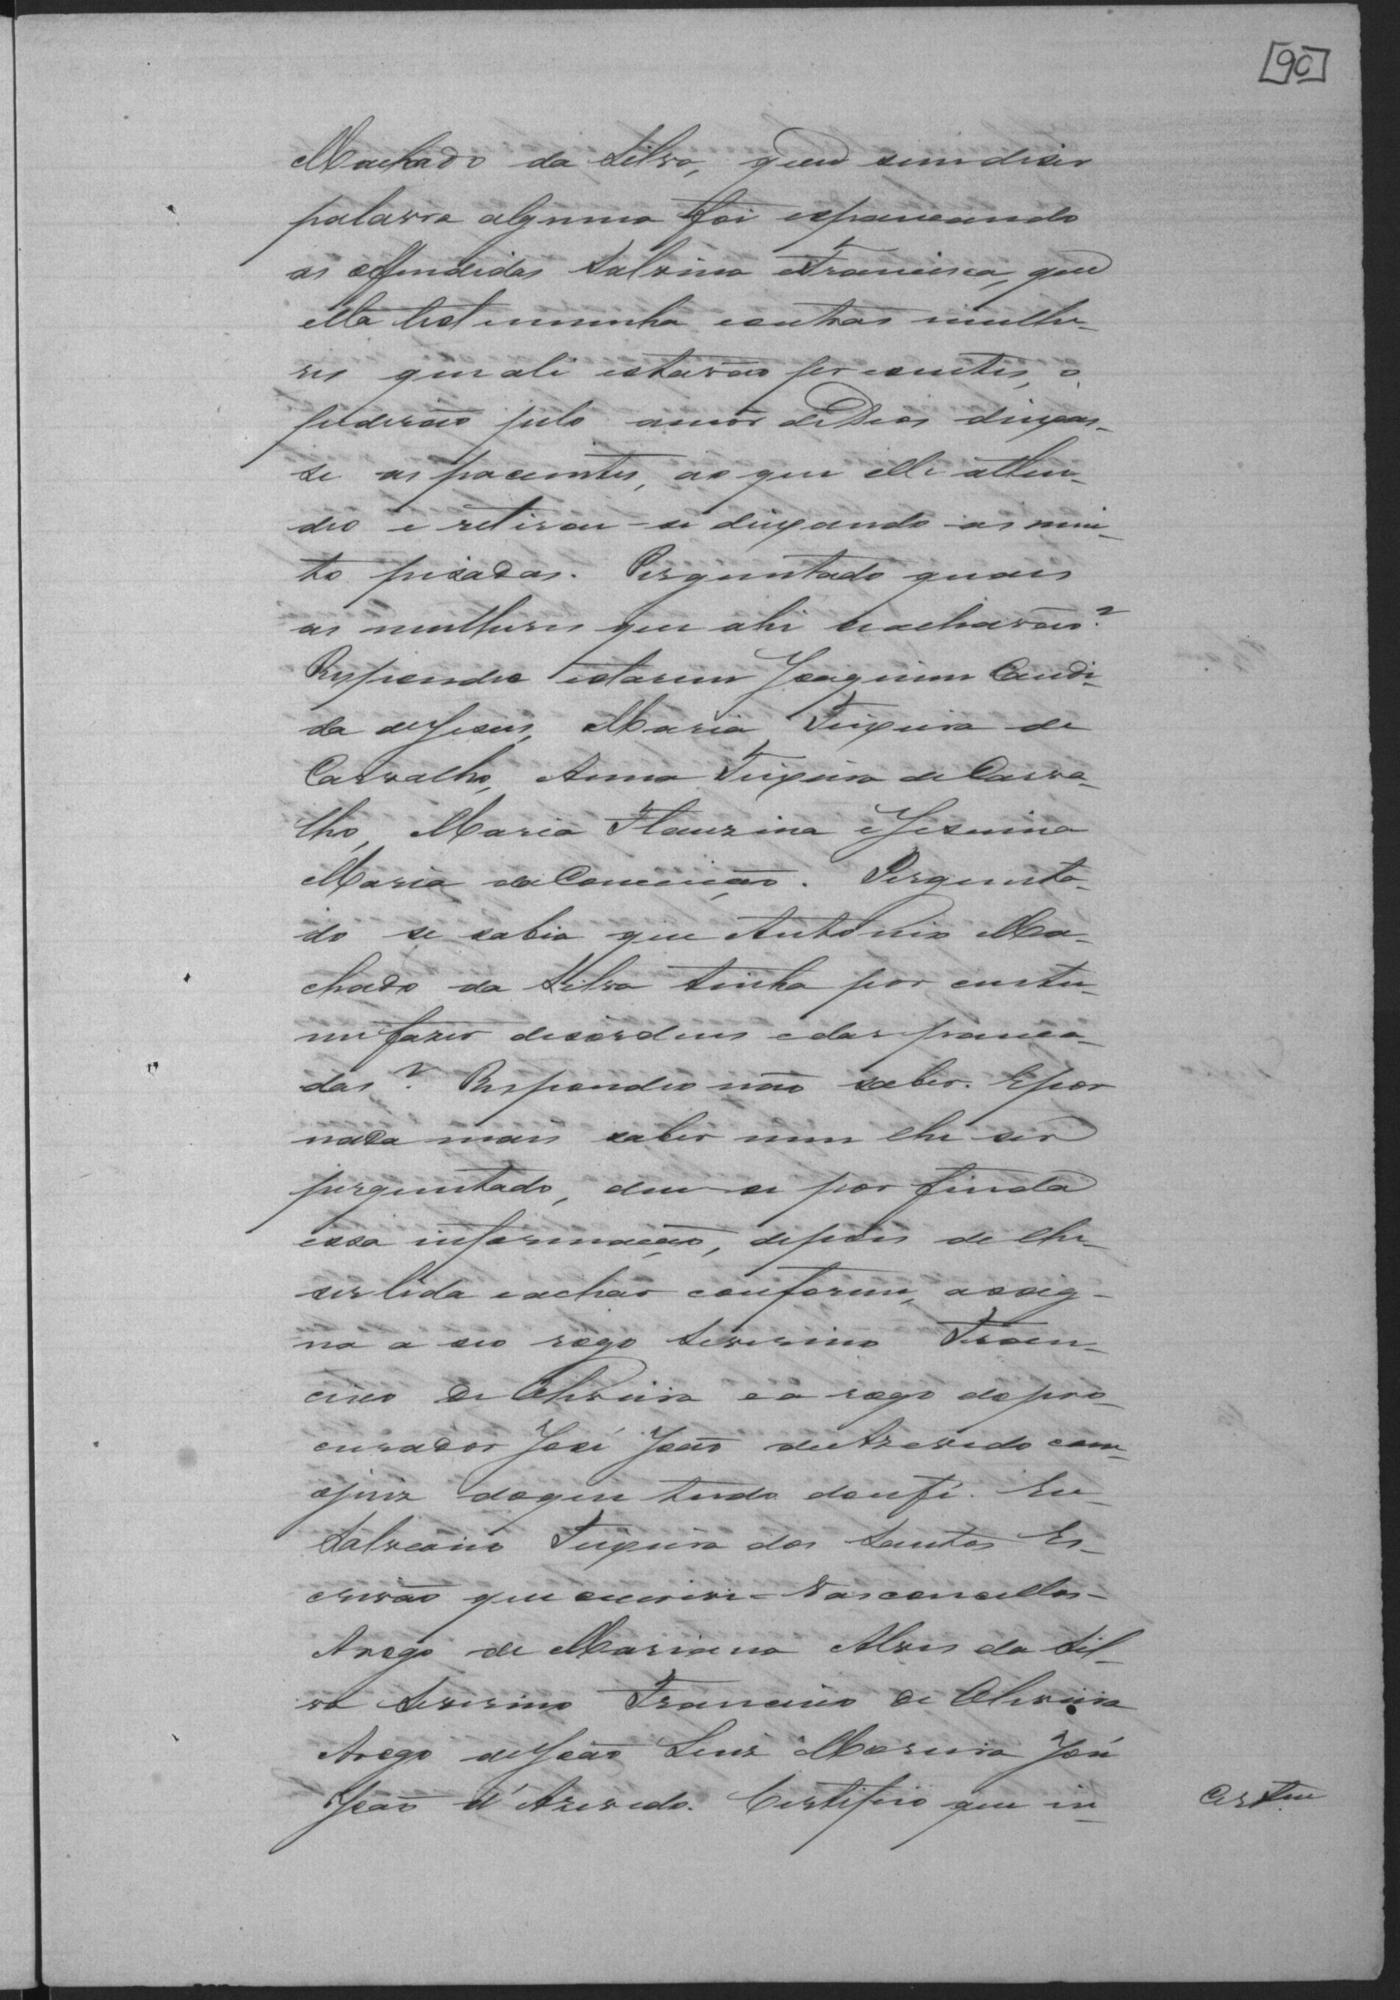 [90]
Machado da Silva, quem sem diser
palavra alguma foi espancando
as offendidas Salvina e Francisca, que
ella testemunha e outras mulhe-
res que ali estavão presentes, o
pedirão pelo amor de Deos deixas-
se as pacientes, ao que elle atten-
deo e retirou-se deixando-as mui-
to pisadas. Perguntado quais
as mulheres que ahi se acharão?
Respondeo estarem Joaquina Candi-
da de Jesus, Maria Teixeira de
Carvalho, Anna Teixeira de Carva-
lho, Maria Flauzina e Jesuina
Maria da Conceição. Pergunta-
do se sabia que Antonio Ma-
chado da Silva tinha por custu-
me fazer desordens e dar panca-
das? Respondeo não saber. E por
nada mais saber nem lhe ser
perguntado, deu-se por finda
essa informação, depois de lhe
ser lida e achar conforme, assig-
na a seo rogo Severino Fran-
cisco de Oliveira e a rogo do pro-
curador José João de Azevedo com
o juiz do que tudo dou fé. Eu
Salviano Teixeira dos Santos Es-
crivão que escrivi - Vasconcellos -
A rogo de Mariana Alves da Sil-
va Severino Francisco de Oliveira
A rogo de João Luiz Moreira José
João d'Azevedo. Certifico que in-